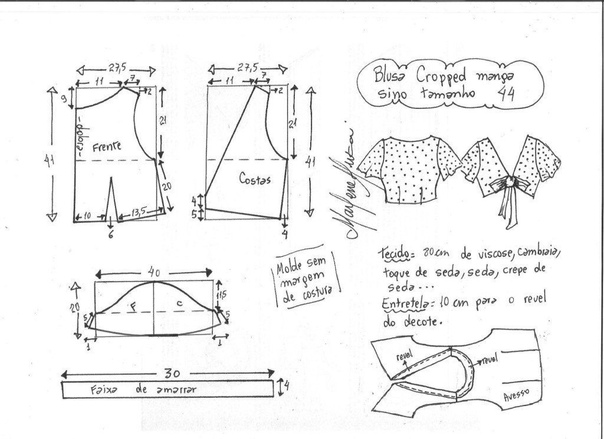 27,5
11
7
2
9
41
21
-dobra-
Frente
20
10
13,5
6
27,5
11
7
2
21
41
Costas
4
5
4
Blusa Cropped manga
sino tamanho 44
Marlene Mukai
40
20
11,5
F
C
5
5
1
1
Molde sem
margem
de costura
30
Faixa de amarrar
4
Tecido = 80cm de viscose, cambraia,
toque de seda, seda, crepe de
seda...
Entretela = 10 cm para o revel
do decote.
revel
revel
Avesso